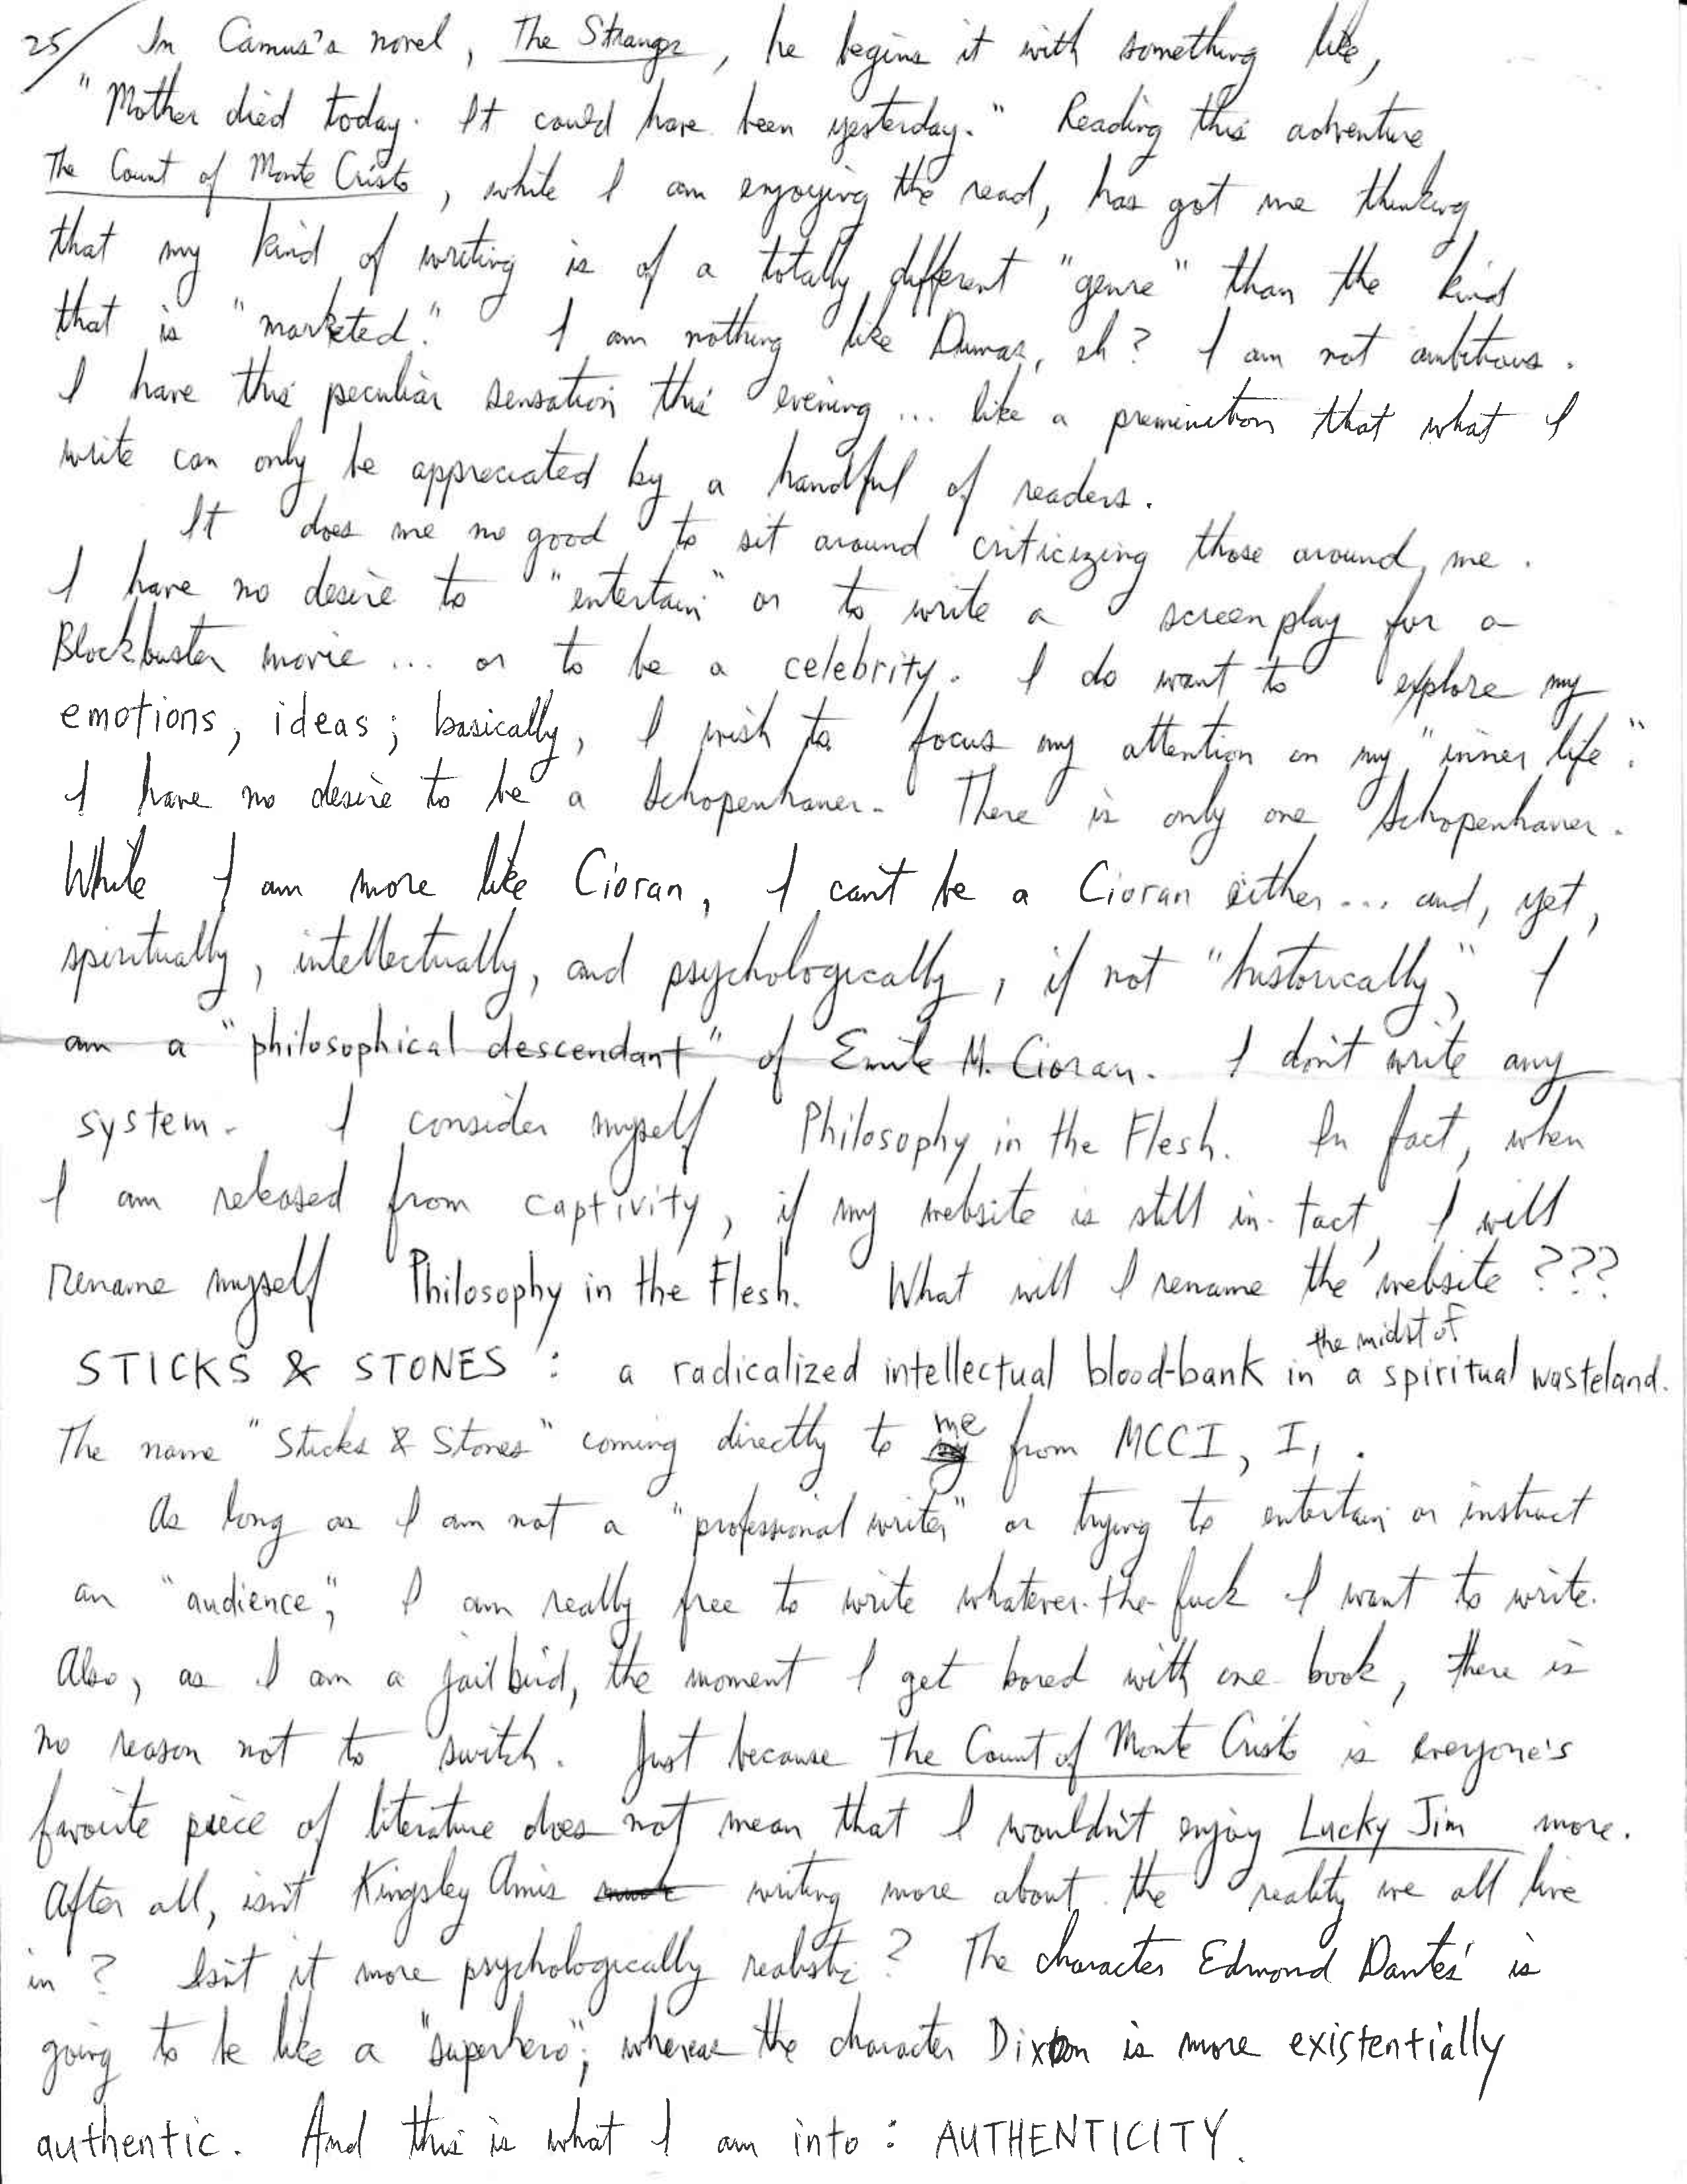 25/ In Camus's novel, The Stranger, he begins it with something like,
"Mother died today. It could have been yesterday." Reading this adventure,
The Count of Monte Cristo, while I am enjoying the read, has got me thinking
that my kind of writing is of a totally different "genre" than the kind
that is "marketed." I am nothing like Dumas, eh? I am not ambitious.
I have this peculiar sensation this evening... like a preminition that what I
write can only be appreciated by a handful of readers.
It does me no good to sit around criticizing those around me.
I have no desire to "entertain" or to write a screenplay for a
Blockbuster movie... or to be a celebrity. I do want to explore my
emotions, ideas; basically, I wish to focus my attention on my "inner life".
I have no desire to be a Schopenhauer. There is only one Schopenhauer.
While I am more like Cioran, I can't be a Cioran either... and, yet,
spiritually, intellectually, and psychologically, if not "historically," I
am a "philosophical descendant" of Emile M. Cioran. I don't write any
system. I consider myself Philosophy in the Flesh. In fact, when
I am released from captivity, if my website is still in-tact, I will
rename myself Philosophy in the Flesh. What will I rename the website???
STICKS & STONES: a radicalized intellectual blood-bank in the midst of a spiritual wasteland.
The name "Sticks & Stones" coming directly to me from MCCI, I,.
As long as I am not a "professional writer" or trying to entertain or instruct
an "audience", I am really free to write whatever-the-fuck I want to write.
Also, as I am a jailbird, the moment I get bored with one book, there is
no reason not to switch. Just because The Count of Monte Cristo is everyone's
favorite piece of literature does not mean that I wouldn't enjoy Lucky Jim more.
After all, isn't Kingsley Amis writing more about the reality we all live
in? Isn't it more psychologically realistic? The character Edmond Dantés is
going to be like a "superhero"; whereas the character Dixon is more existentially
authentic. And this is what I am into: AUTHENTICITY.